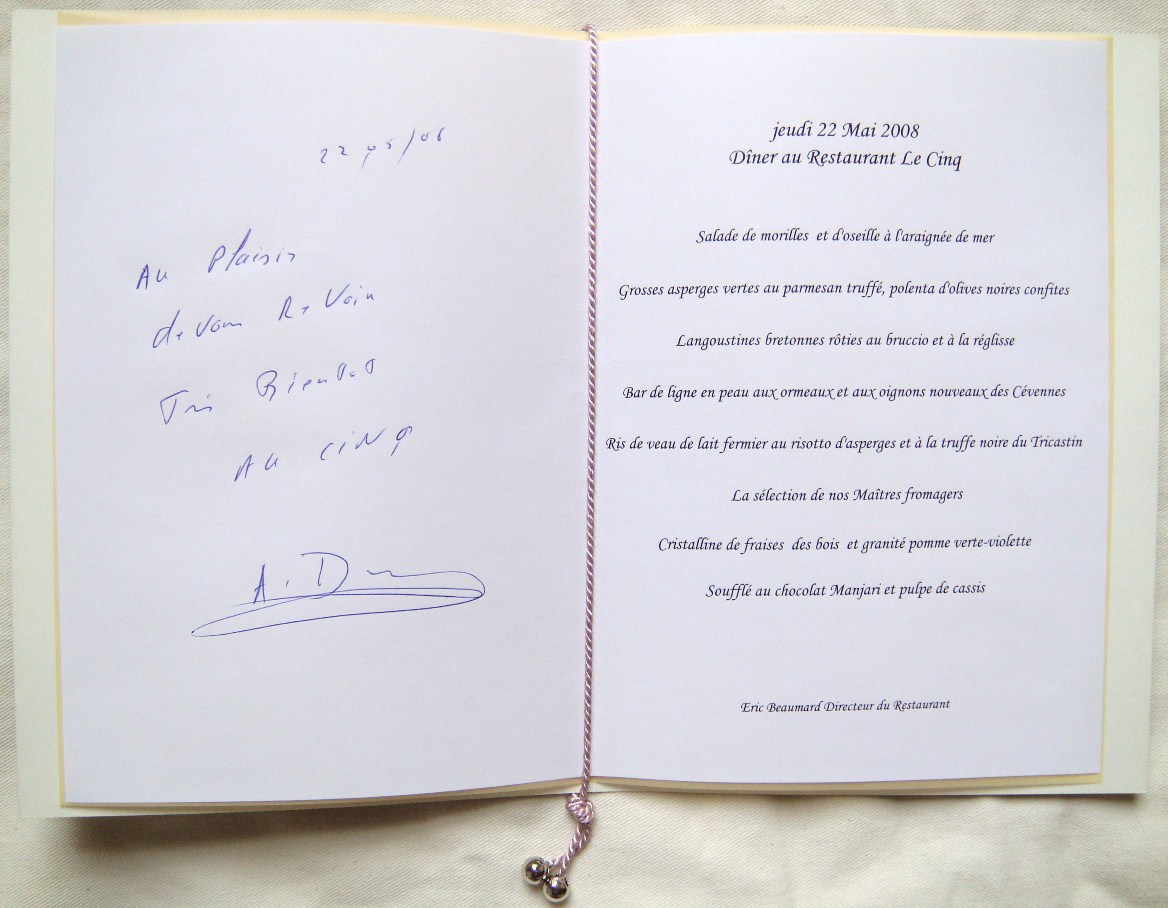 22 05/08
Au Plaisir
de Vous ReVoir
Très Bientôt
Au CiNq
A. D
jeudi 22 Mai 2008
Dîner au Restaurant Le Cinq
Salade de morilles et d'oseille à l'araignée de mer
Grosses asperges vertes au parmesan truffé, polenta d'olives noires confites
Langoustines bretonnes rôties au bruccio et à la réglisse
Bar de ligne en peau aux ormeaux et aux oignons nouveaux des Cévennes
Ris de veau de lait fermier au risotto d'asperges et à la truffe noire du Tricastin
La sélection de nos Maîtres fromagers
Cristalline de fraises des bois et granité pomme verte-violette
Soufflé au chocolat Manjari et pulpe de cassis
Eric Beaumard Directeur du Restaurant